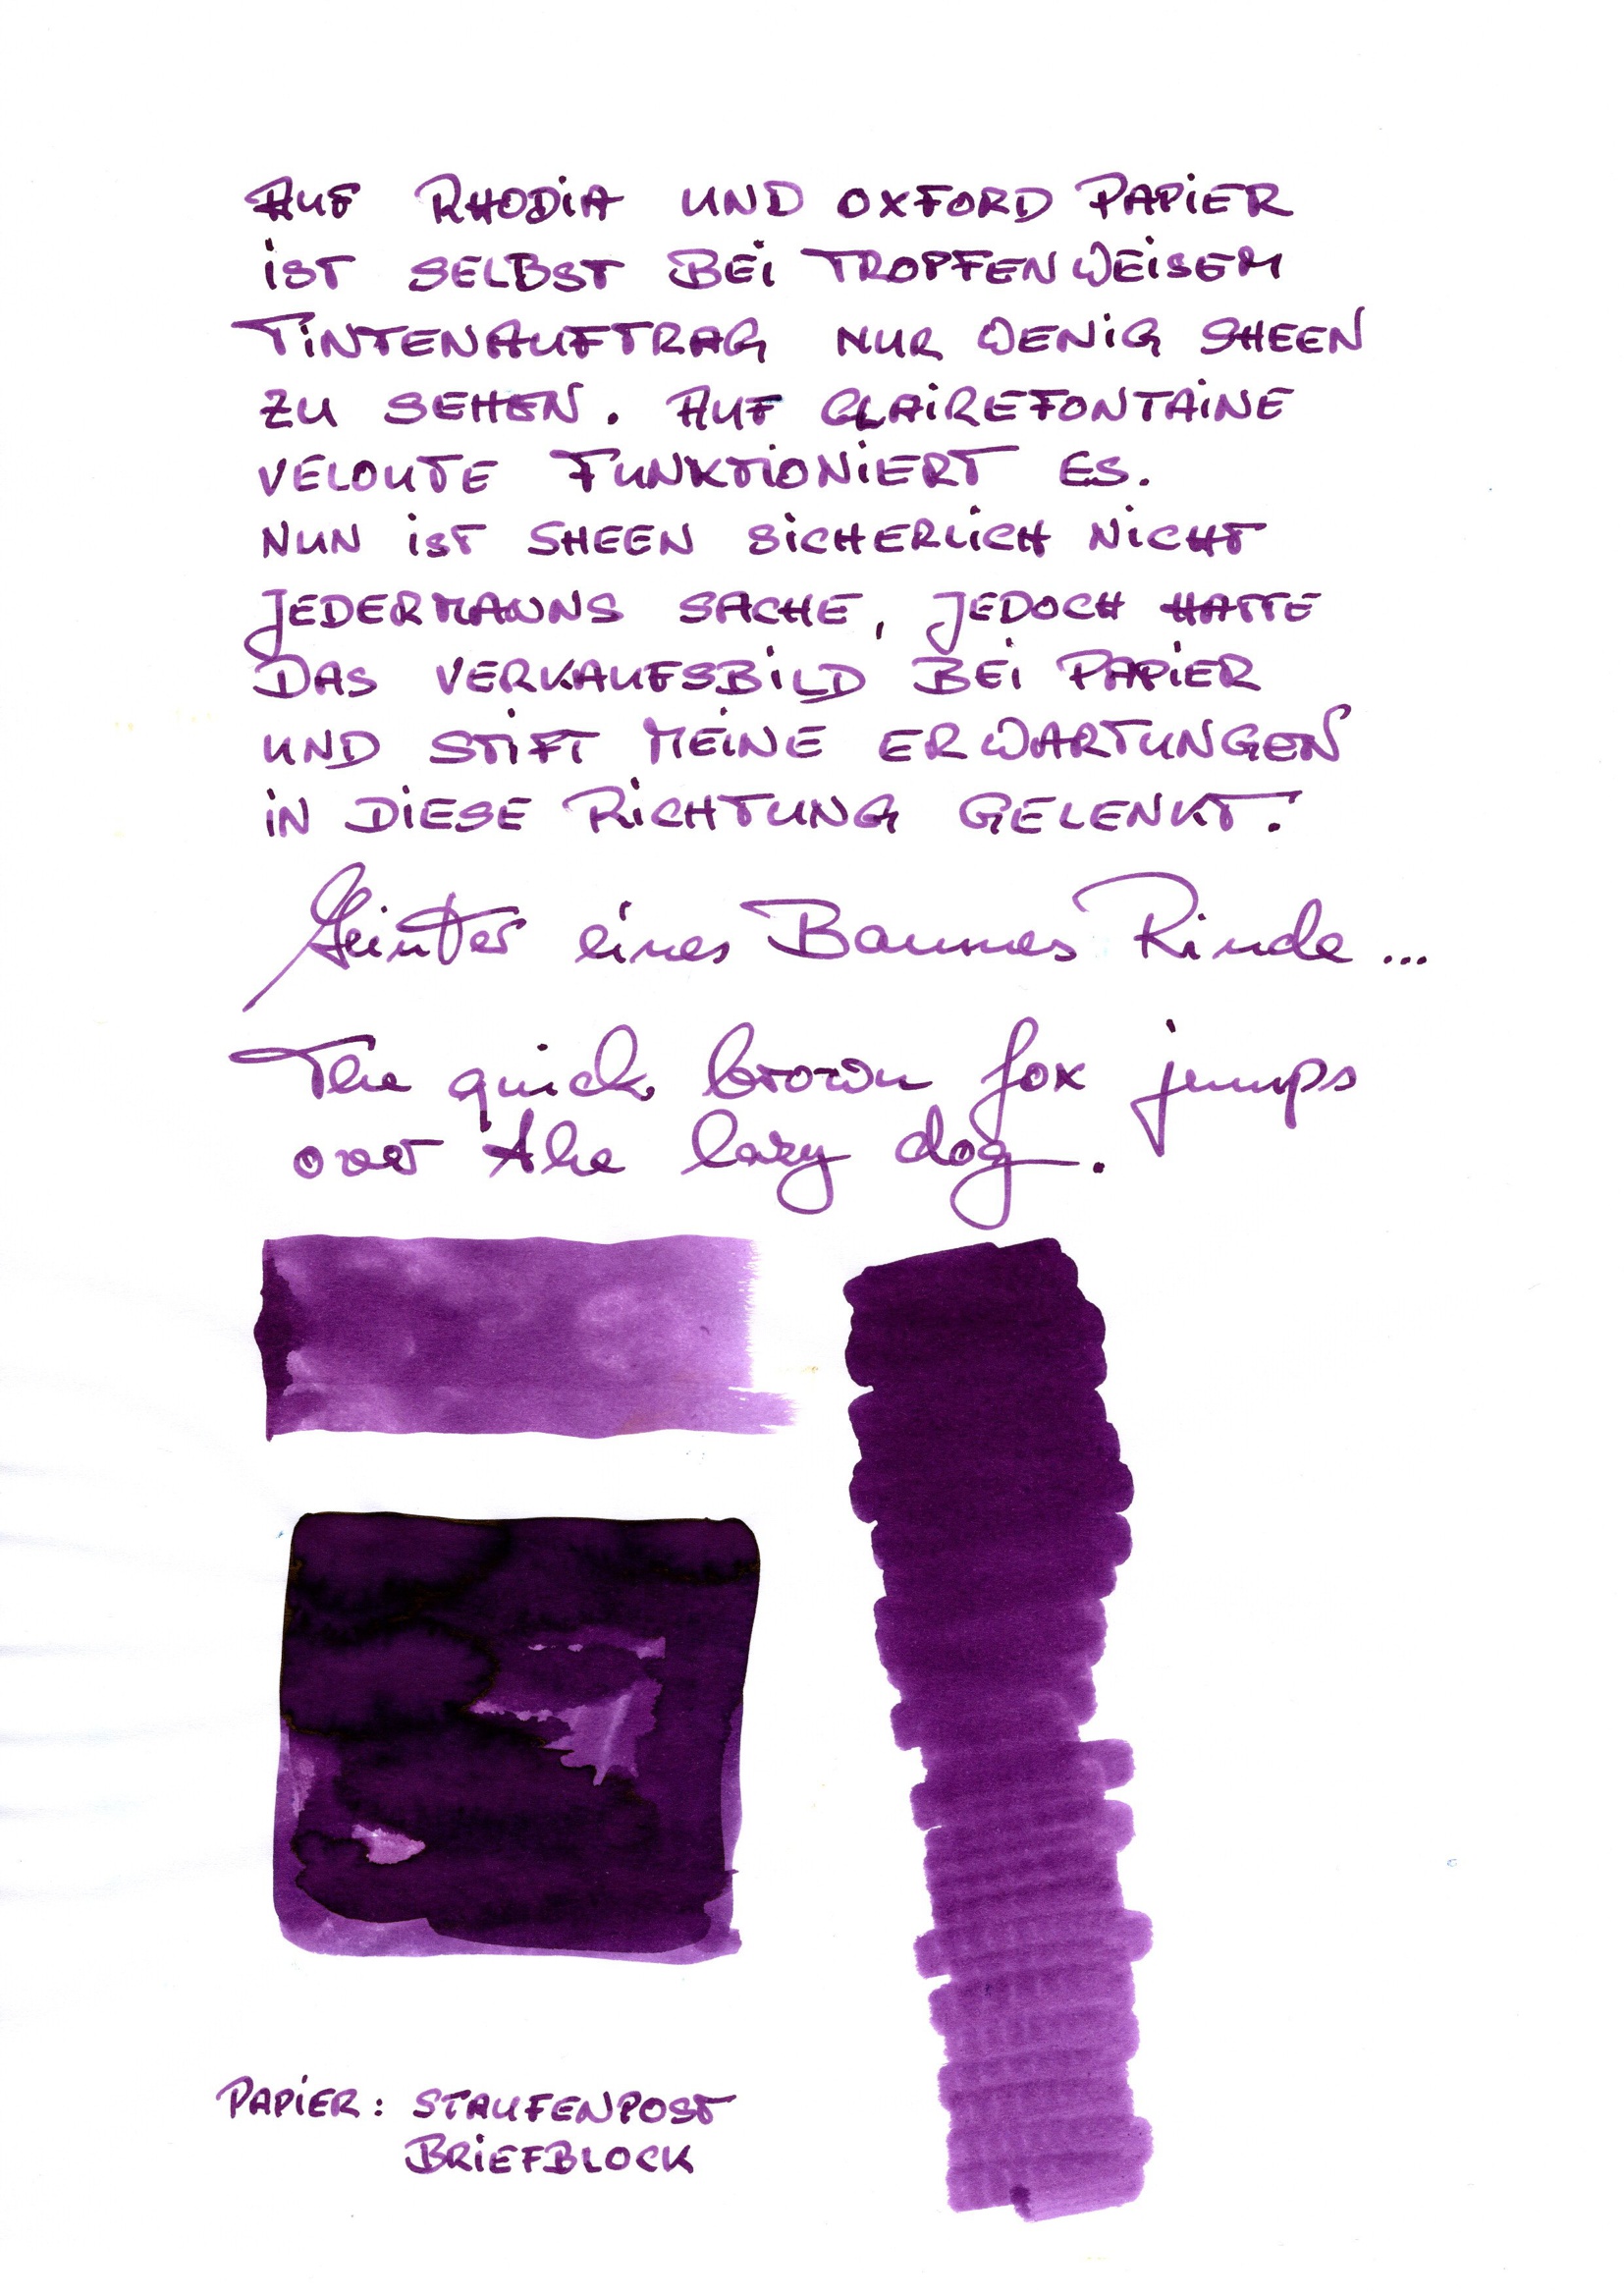 AUF RHODiA UND OXFORD PAPiER
iST SELBST BEi TROPFENWEiSEM
TiNTENAUFTRAG NUR WENiG SHEEN
ZU SEHEN. AUF CLAiREFONTAiNE
VELOUTE FUNKTiONiERT ES.
NUN iST SHEEN SiCHERLiCH NiCHT
JEDERMANNS SACHE, JEDOCH HATTE
DAS VERKAUFSBiLD BEi PAPiER
UND STiFT MEiNE ERWARTUNGEN
iN DiESE RiCHTUNG GELENKT.
Hinter eines Baumes Rinde ...
The quick brown fox jumps
over the lazy dog.
PAPiER: STAUFENPOST
BRiEFBLOCK